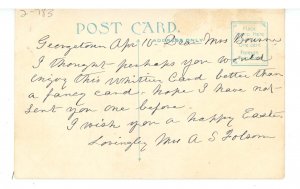 2-785
POST CARD.
Georgetown Apr 10 - Dear Mrs
ADDRESS ONLY
I thought perhaps you would
enjoy this Whittier Card better than
a fancy card. hope I have not
sent you one before.
I wish you a happy Easter
Lovingly Mrs A S Folsom
Place